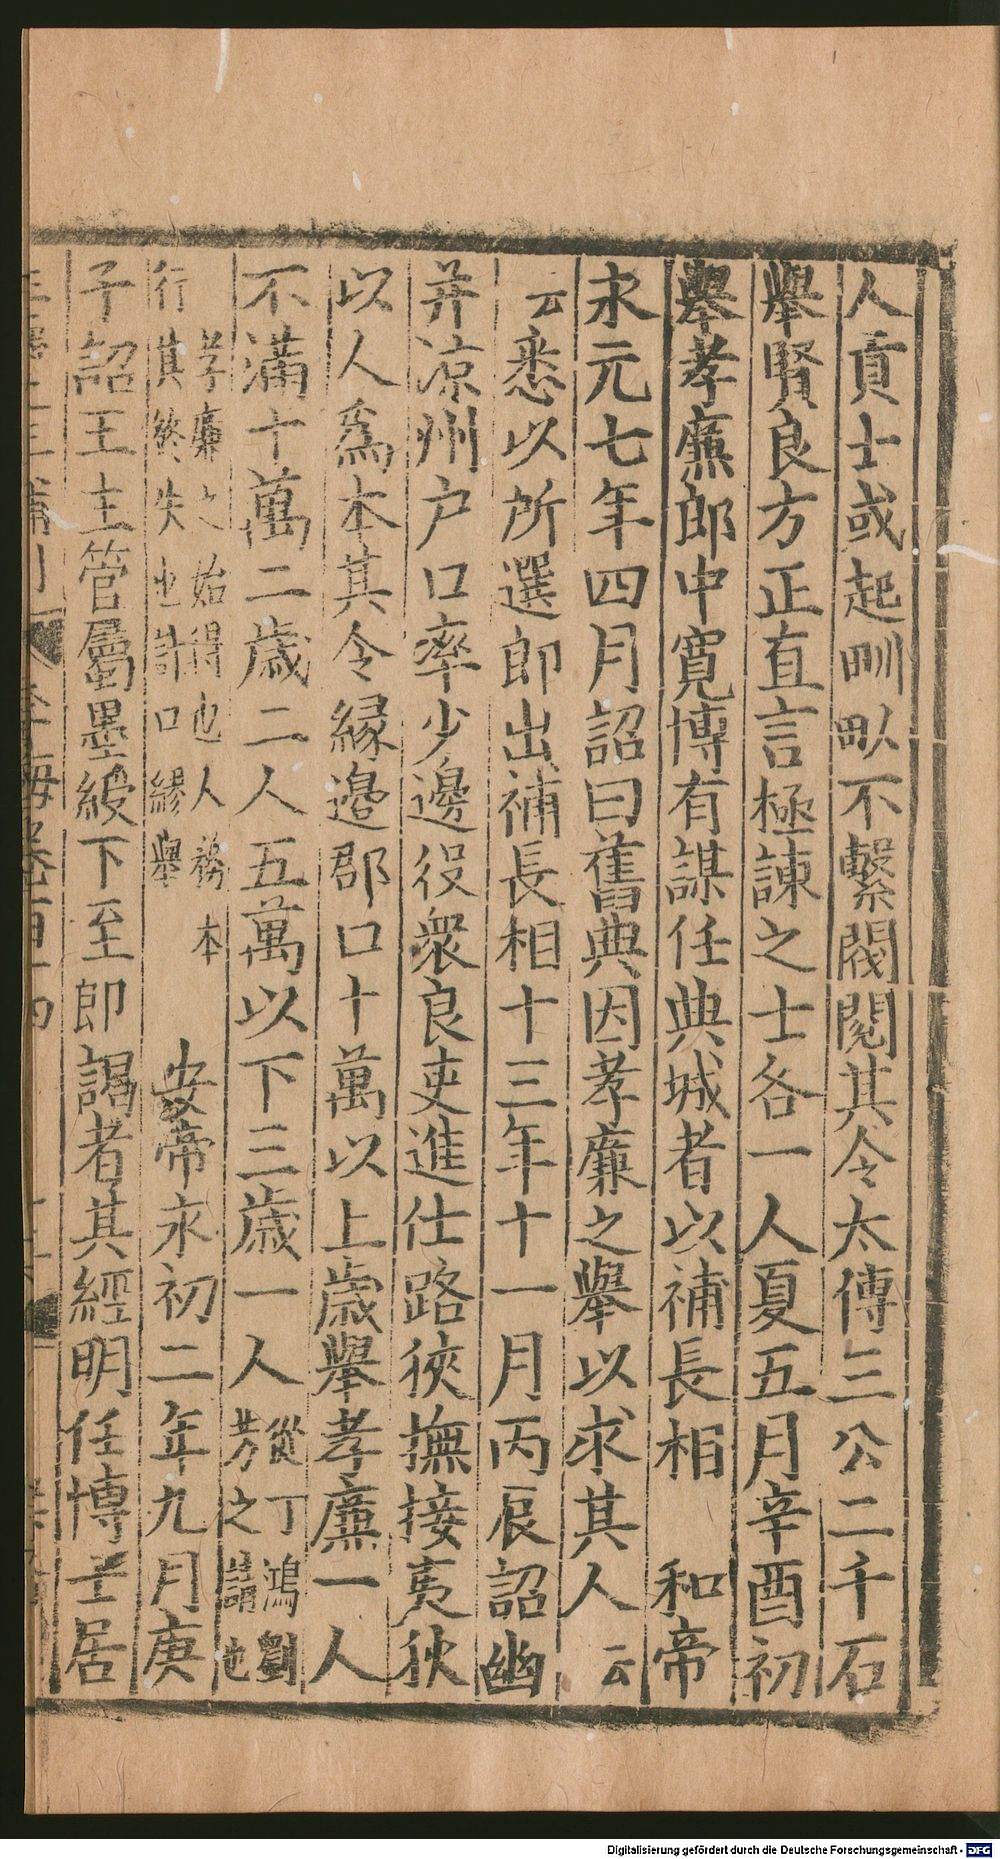 人貢士或起甽畒不繫閥閱其令太傅三公二千石
舉賢良方正直言極諫之士各一人夏五月辛酉初
舉孝廉郎中寬博有謀任典城者以補長相　和帝
永元七年四月詔曰舊典因孝廉之舉以求其人云
云悉以所選郎出補長相十三年十一月丙辰詔幽
并凉州户口率少邊役衆良吏進仕路狹撫接夷狄
以人爲本其令緣邊郡口十萬以上歲舉孝廉一人
不滿十萬二歲二人五萬以下三歲一人從丁鴻劉
芳之請也
孝廉之始得也人務本
行其終失也詐口繆舉
安帝永初二年九月庚
子詔王主管屬墨綬下至郎謁者其經明任博士居
Digitalisierung gefördert durch die Deutsche Forschungsgemeinschaft - DFG